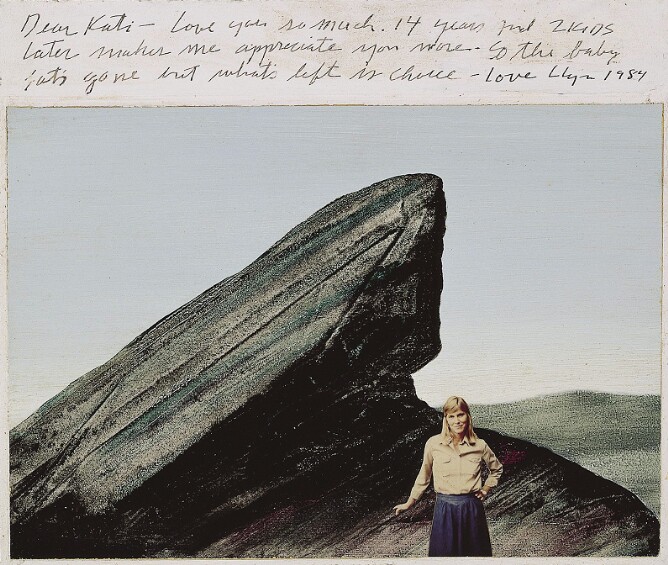 Dear Kati - Love you so much. 14 years and 2 KIDS
later makes me appreciate you more. So the baby
fats gone but what's left is choice - Love Llyn 1984